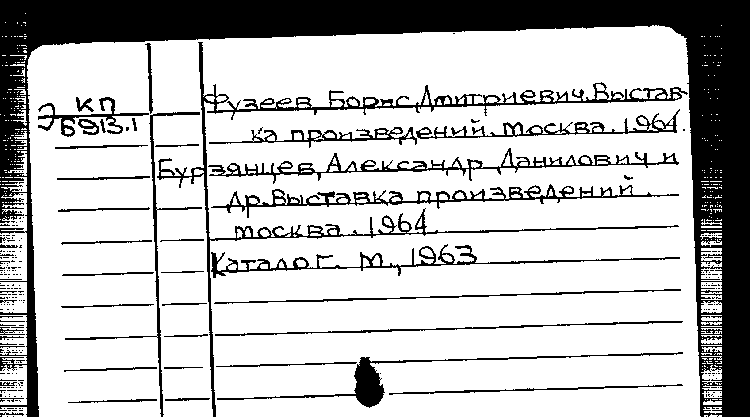 КП
Э 6913.1
Фузеев, Борис Дмитриевич. Выстав-
ка произведений. Москва. 1964.
Бурзянцев, Александр Данилович и
др. Выставка произведений.
Москва. 1964.
Каталог. М., 1963